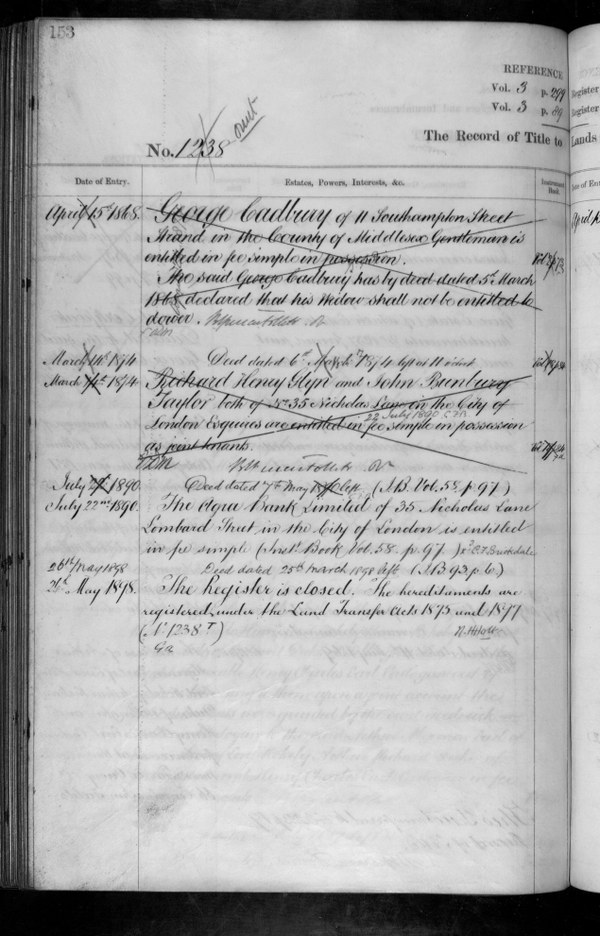 153
REFERENCE
Vol. 3 p. 299
Vol. 3 p. 89
No. 1238
The Record of Title to Lands
Date of Entry.
Estates, Powers, Interests, &c.
Instrument Book.
April 15th 1868.
George Cadbury of 11 Southampton Street
Strand in the County of Middlesex Gentleman is
entitled in fee simple in possession.
The said George Cadbury has by deed dated 5th March
1868 declared that his widow shall not be entitled to
dower.
March 14th 1874
Deed dated 6th March 1874 left at 11 o'clock
March 14th 1874
Richard Henry Glyn and John Bunbury
Taylor both of No. 35 Nicholas Lane in the City of
22 July 1890
London Esquires are entitled in fee simple in possession
as joint tenants.
July 22 1890.
Deed dated 7th May left. (I.B. Vol. 58 p. 97)
July 22nd 1890.
The Agra Bank Limited of 35 Nicholas Lane
Lombard Street in the City of London is entitled
in fee simple (Inst. Book Vol. 58. p. 97.)
26th May 1898
Deed dated 25th March 1898 left (I.B. 93. p. 6.)
May 1898.
The Register is closed. The hereditaments are
registered under the Land Transfer Acts 1875 and 1897
(No. 1238 T)
Register
Register
Lands